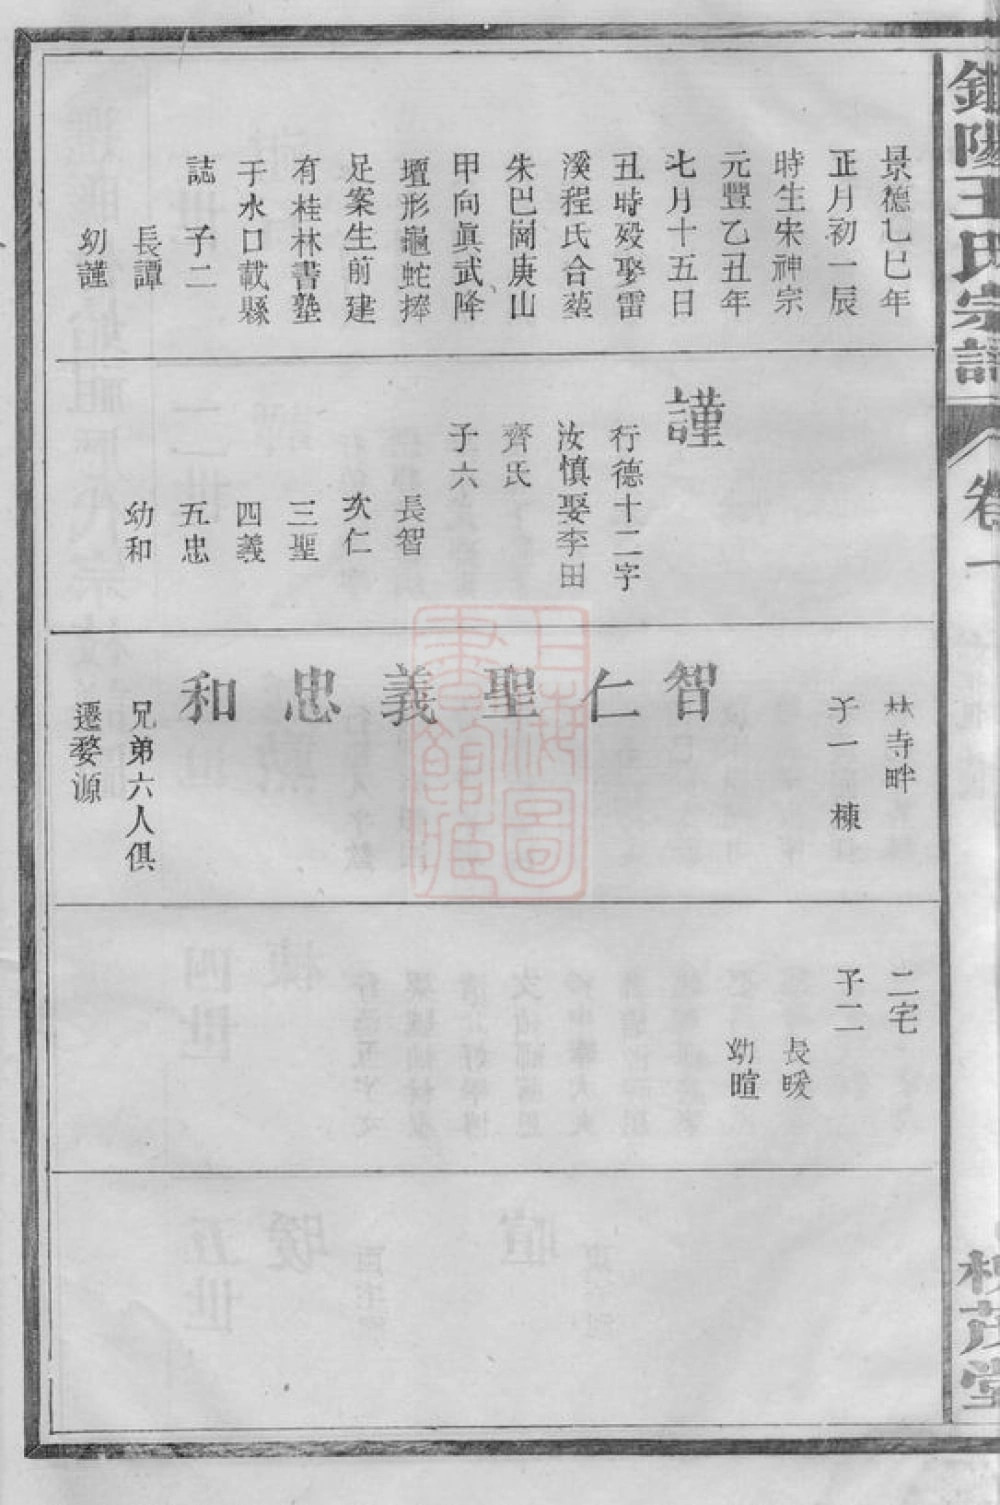 陽王氏宗譜
卷一
茂堂
景德乙巳年
正月初一辰
時生宋神宗
元豐乙丑年
七月十五日
丑時歿娶雷
溪程氏合葬
朱巴崗庚山
甲向眞武降
壇形龜蛇捧
足案生前建
有桂林書塾
于水口載縣
誌 子二
長譚
幼謹
謹
行德十二字
汝慎娶李田
齊氏
子六
長智
次仁
三聖
四義
五忠
幼和
林寺畔
子一 棟
智
仁
聖
義
忠
和
兄弟六人俱
遷婺源
二宅
子二
長暖
幼暄
上海圖
書館藏